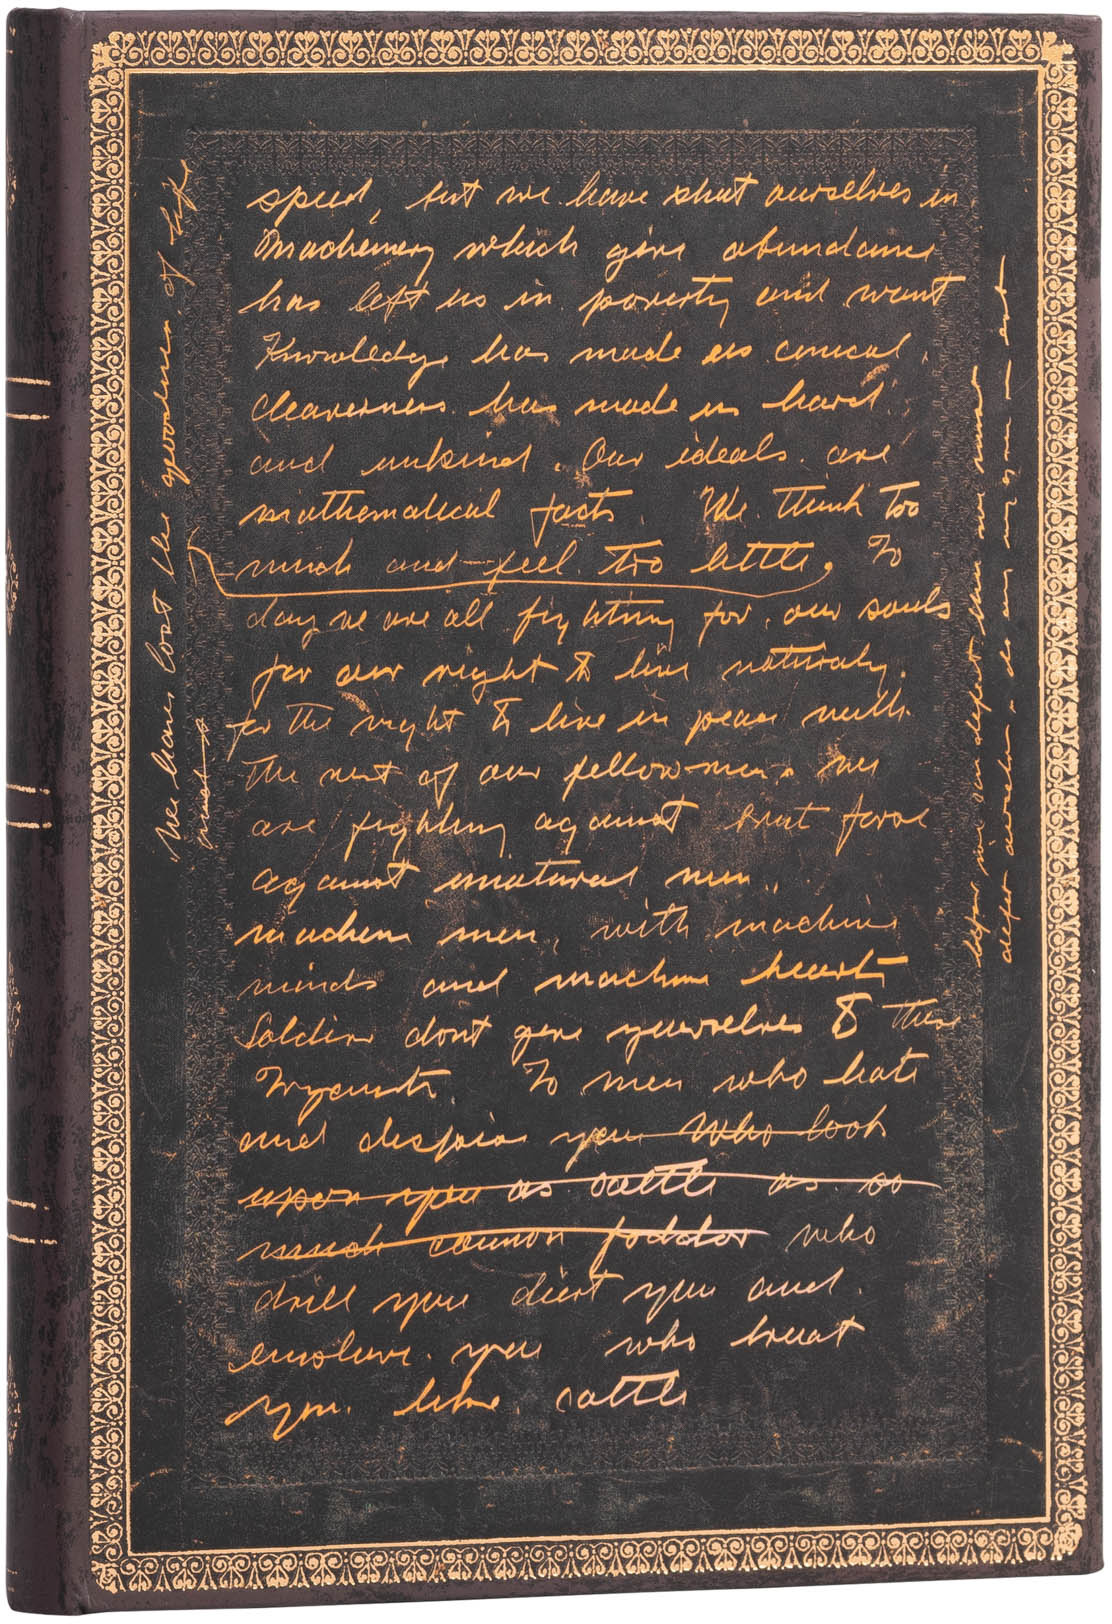 speed, but we have shut ourselves in
Machenery which give abundance
has left us in poverty and want
Knowledge has made us cinical,
cleaverness has made us hard
and unkind. Our ideals are
mathematical facts. We think too
much and feel too little. To
day we are all fighting for our souls
for our right to live naturaly
for the right to live in peace with
the rest of our fellowmen. We
are fighting against brut force
against unatural men,
machene men, with machine
minds and machine hearts
Soldiers dont give yourselves to these
To men who hate
and despise you who look
upon you as cattle as so
much cannon fodder who
drill you diert you and
enslave you who treat
you like cattle
We have lost the goodness of life